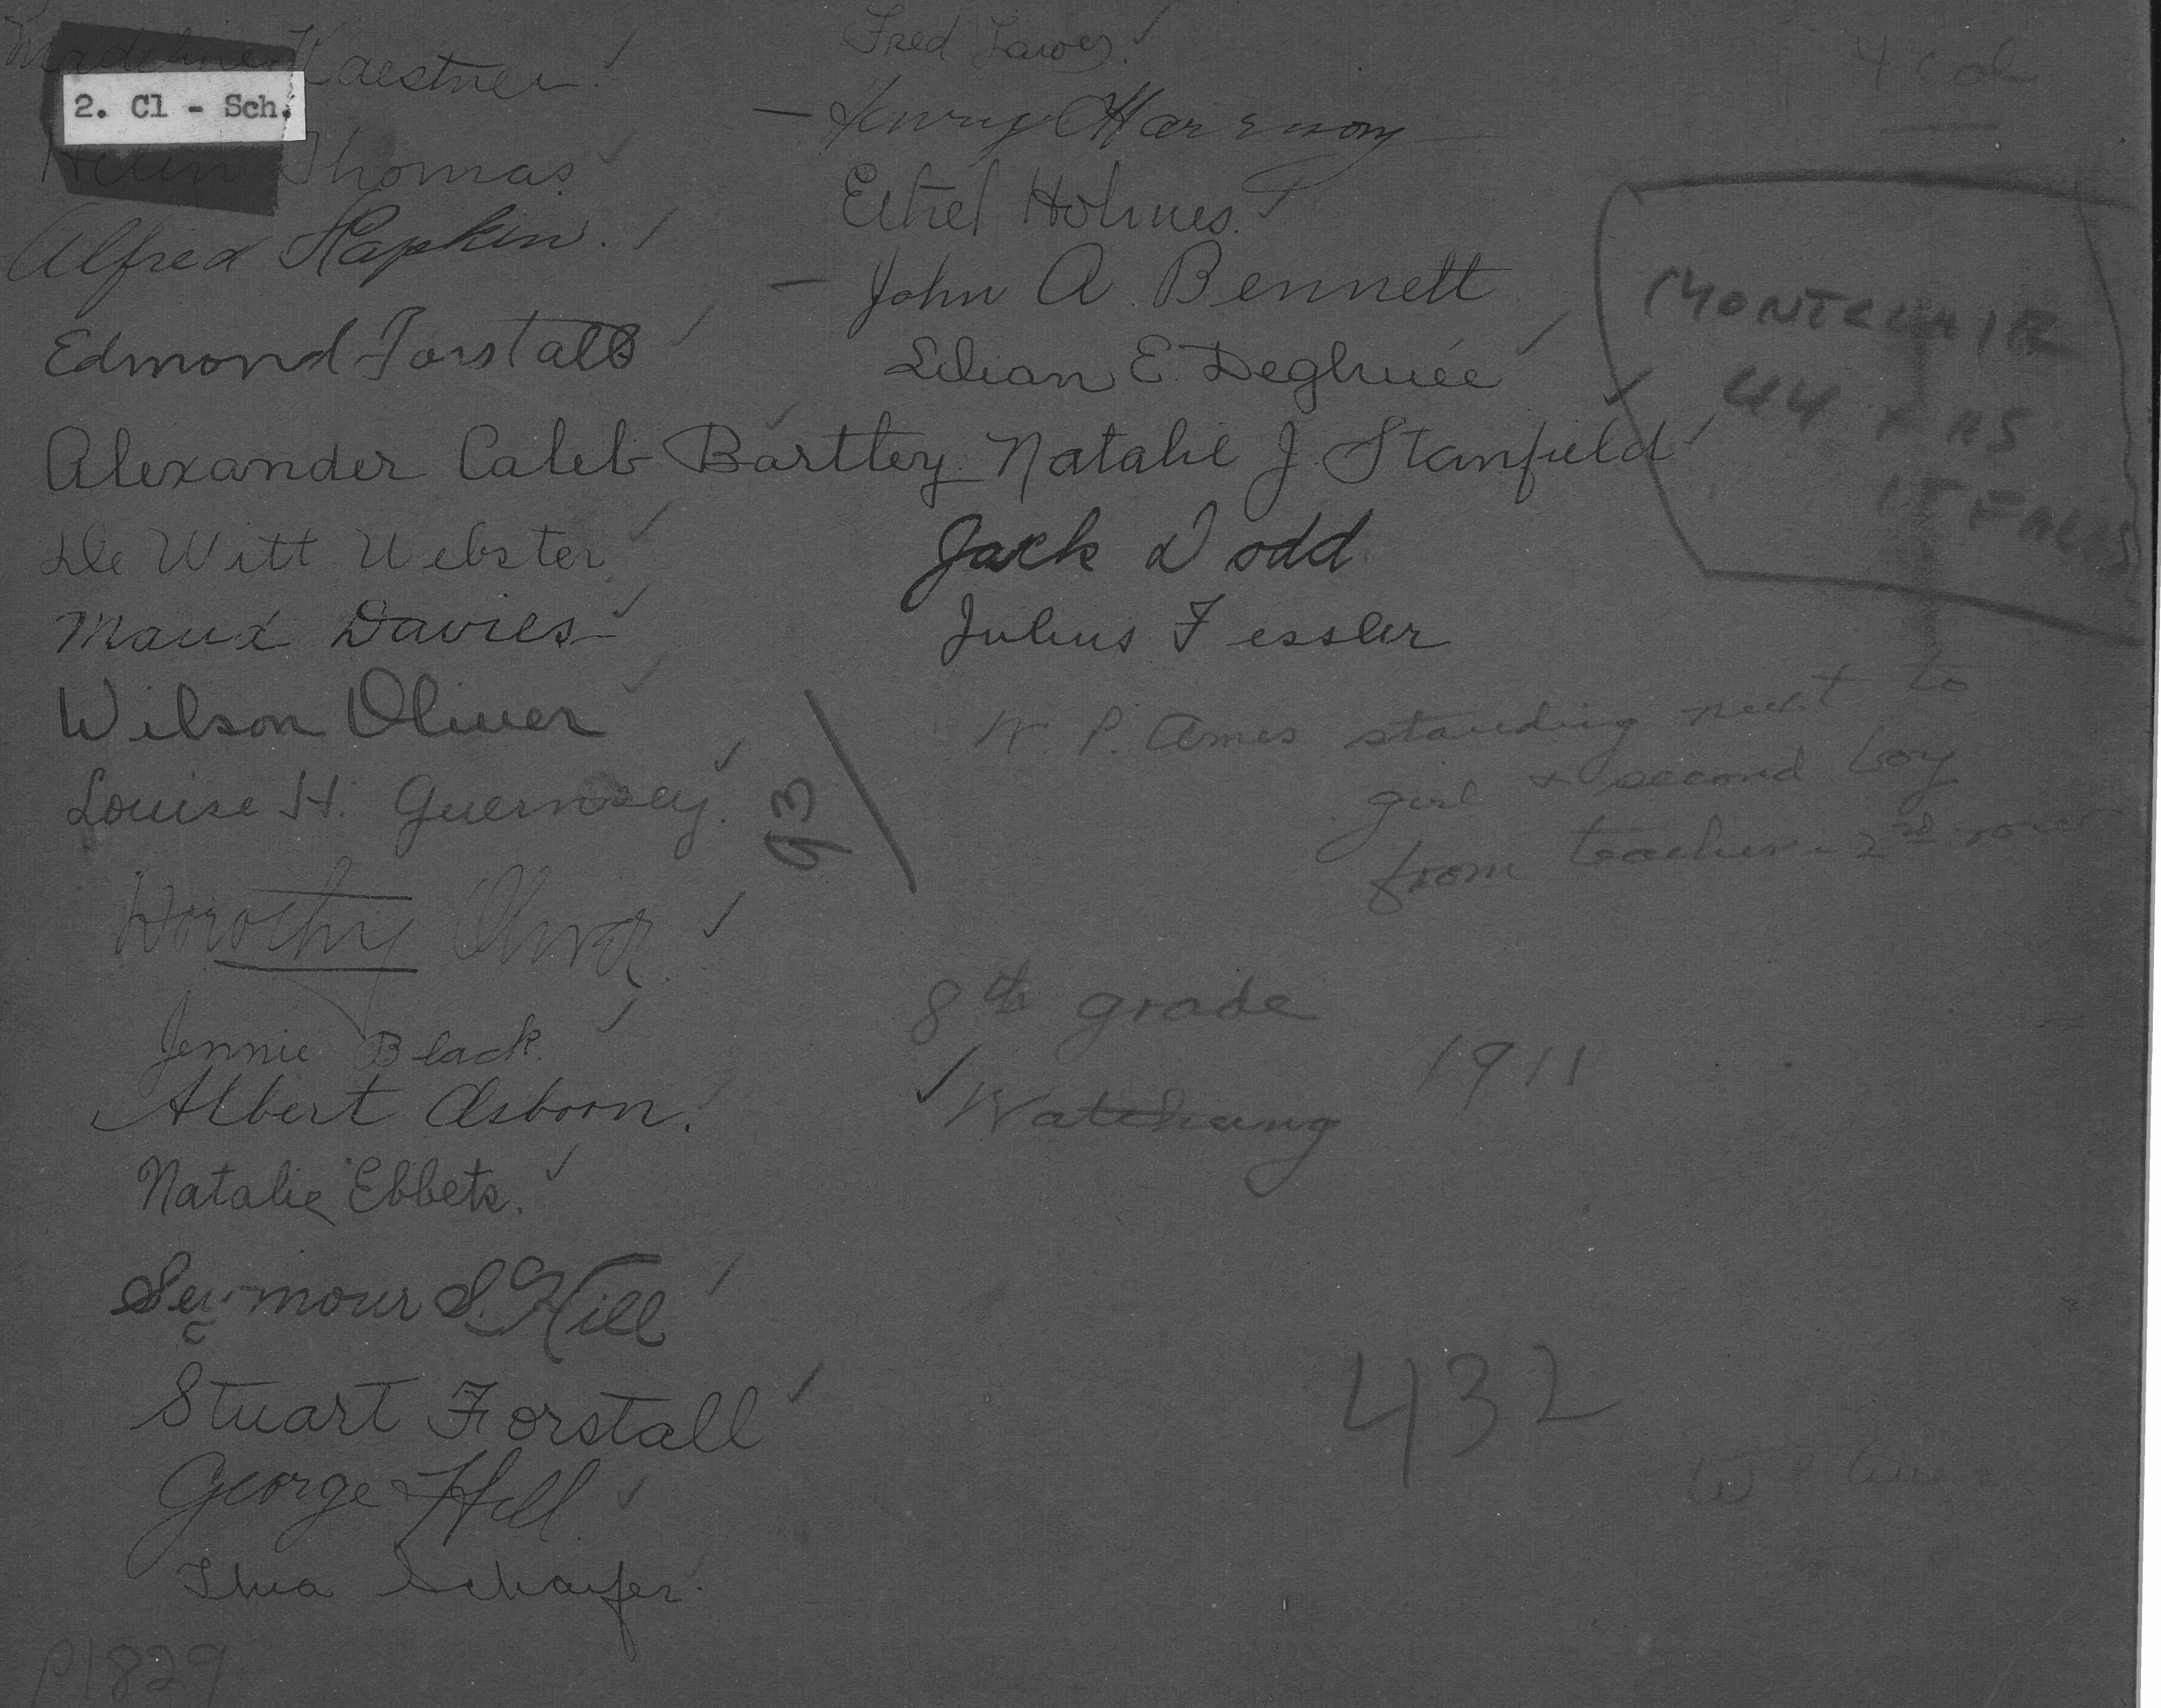 Madeline Kaestner
2. Cl - Sch.
Helen Thomas
Alfred Hapkin.
Edmond Forstall
Alexander Caleb Bartley
De Witt Webster
Maud Davies
Wilson Oliver
Louise H. Guernsey.
Dorothy Oliver.
Jennie Black.
Albert Osborn.
Natalie Ebbets.
Seymour S. Hill
Stuart Forstall
George Hill
Schaefer.
P1829
Fred Lawes
Henry Harrison
Ethel Holmes.
John A. Bennett
Lilian E. Deghuée
Natalie J. Stanfield
Jack Dodd
Julius Fessler
93
W. P. Ames standing next to
girl & second boy
from teacher - 2nd row
8th grade
1911
Watchung
432
4 col
MONTCLAIR
44 YRS
IT FALLS
W P